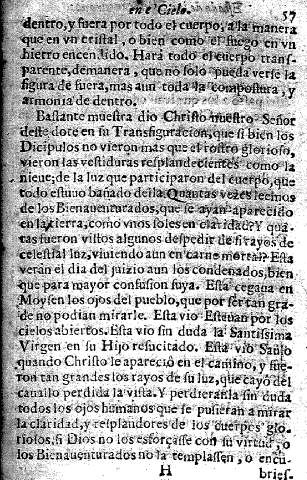 en el Cielo. 57
dentro, y fuera por todo el cuerpo, a la manera
que en vn cristal, o bien como el fuego en vn
hierro encendido. Hará todo el cuerpo trans-
parente, demanera, que no solo pueda verse la
figura de fuera, mas aun toda la compostura, y
armonia de dentro.
Bastante muestra dio Christo nuestro Señor
deste dote en su Transfiguracion, que si bien los
Dicipulos no vieron mas que el rostro glorioso,
vieron las vestiduras resplandecientes como la
nieue; de la luz que participaron del cuerpo, que
todo estuuo bañado della. Quantas vezes leemos
de los Bienauenturados, que se ayan aparecido
en la tierra, como vnos soles en claridad? Y quã-
tas fueron vistos algunos despedir de si rayos de
celestial luz, viuiendo aun en carne mortal? Esta
verán el dia del juizio aun los condenados, bien
que para mayor confusion suya. Esta cegaua en
Moysen los ojos del pueblo, que por ser tan gran-
de no podian mirarle. Esta vio Esteuan por los
cielos abiertos. Esta vio sin duda la Santissima
Virgen en su Hijo resucitado. Esta vio Saulo
quando Christo le apareciò en el camino, y fue-
ron tan grandes los rayos de su luz, que cayò del
cauallo perdida la vista. Y perdieranla sin duda
todos los ojos humanos que se pusieran a mirar
la claridad, y resplandores de los cuerpos glo-
riosos, si Dios no los esforçasse con su virtud, o
los Bienauenturados no la templassen, o encu-
H bries-